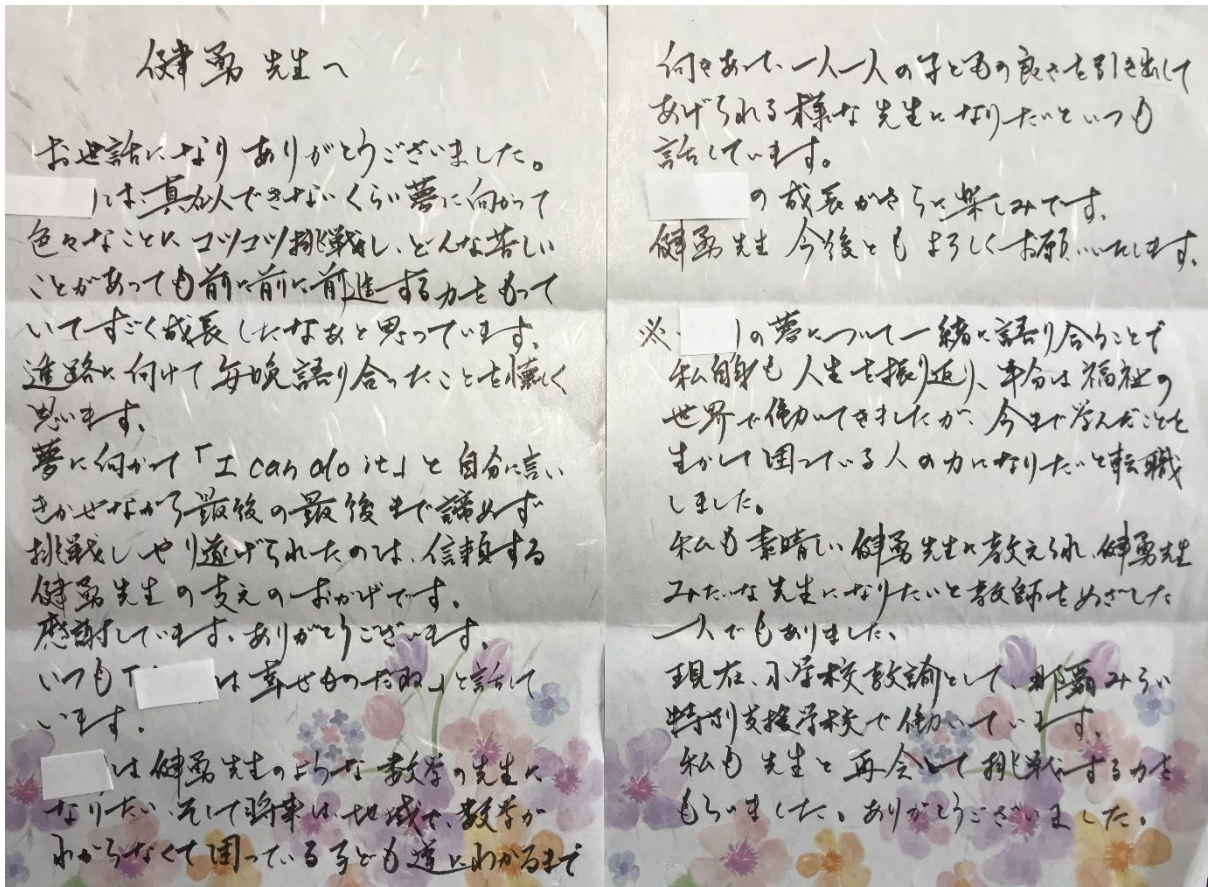 健勇先生へ
お世話になりありがとうございました。
には、真似できないくらい夢に向かって
色々なことにコツコツ挑戦し、どんな苦しい
ことがあっても前に前に前進する力をもって
いてすごく成長したなあと思っています。
進路に向けて毎晩語り合ったことを懐しく
思います。
夢に向かって「I can do it」と自分に言い
きかせながら最後の最後まで諦めず
挑戦しやり遂げられたのは、信頼する
健勇先生の支えのおかげです。
感謝しています。ありがとうございます。
いつも「は幸せものだね」と話して
います。
は健勇先生のような数学の先生に
なりたい、そして将来は、地域で、数学が
わからなくて困っている子ども達にわかるまで
向きあって、一人一人の子どもの良さを引き出して
あげられる様な先生になりたいといつも
話しています。
の成長がさらに楽しみです。
健勇先生今後ともよろしくお願いいたします。
※の夢について一緒に語り合うことで
私自身も人生を振り返り、半分は福祉の
世界で働いてきましたが、今まで学んだことを
生かして困っている人の力になりたいと転職
しました。
私も素晴しい健勇先生に教えられ、健勇先生
みたいな先生になりたいと教師をめざした
一人でもありました。
現在、小学校教諭として、那覇みらい
特別支援学校で働いています。
私も先生と再会して挑戦する力を
もらいました。ありがとうございました。